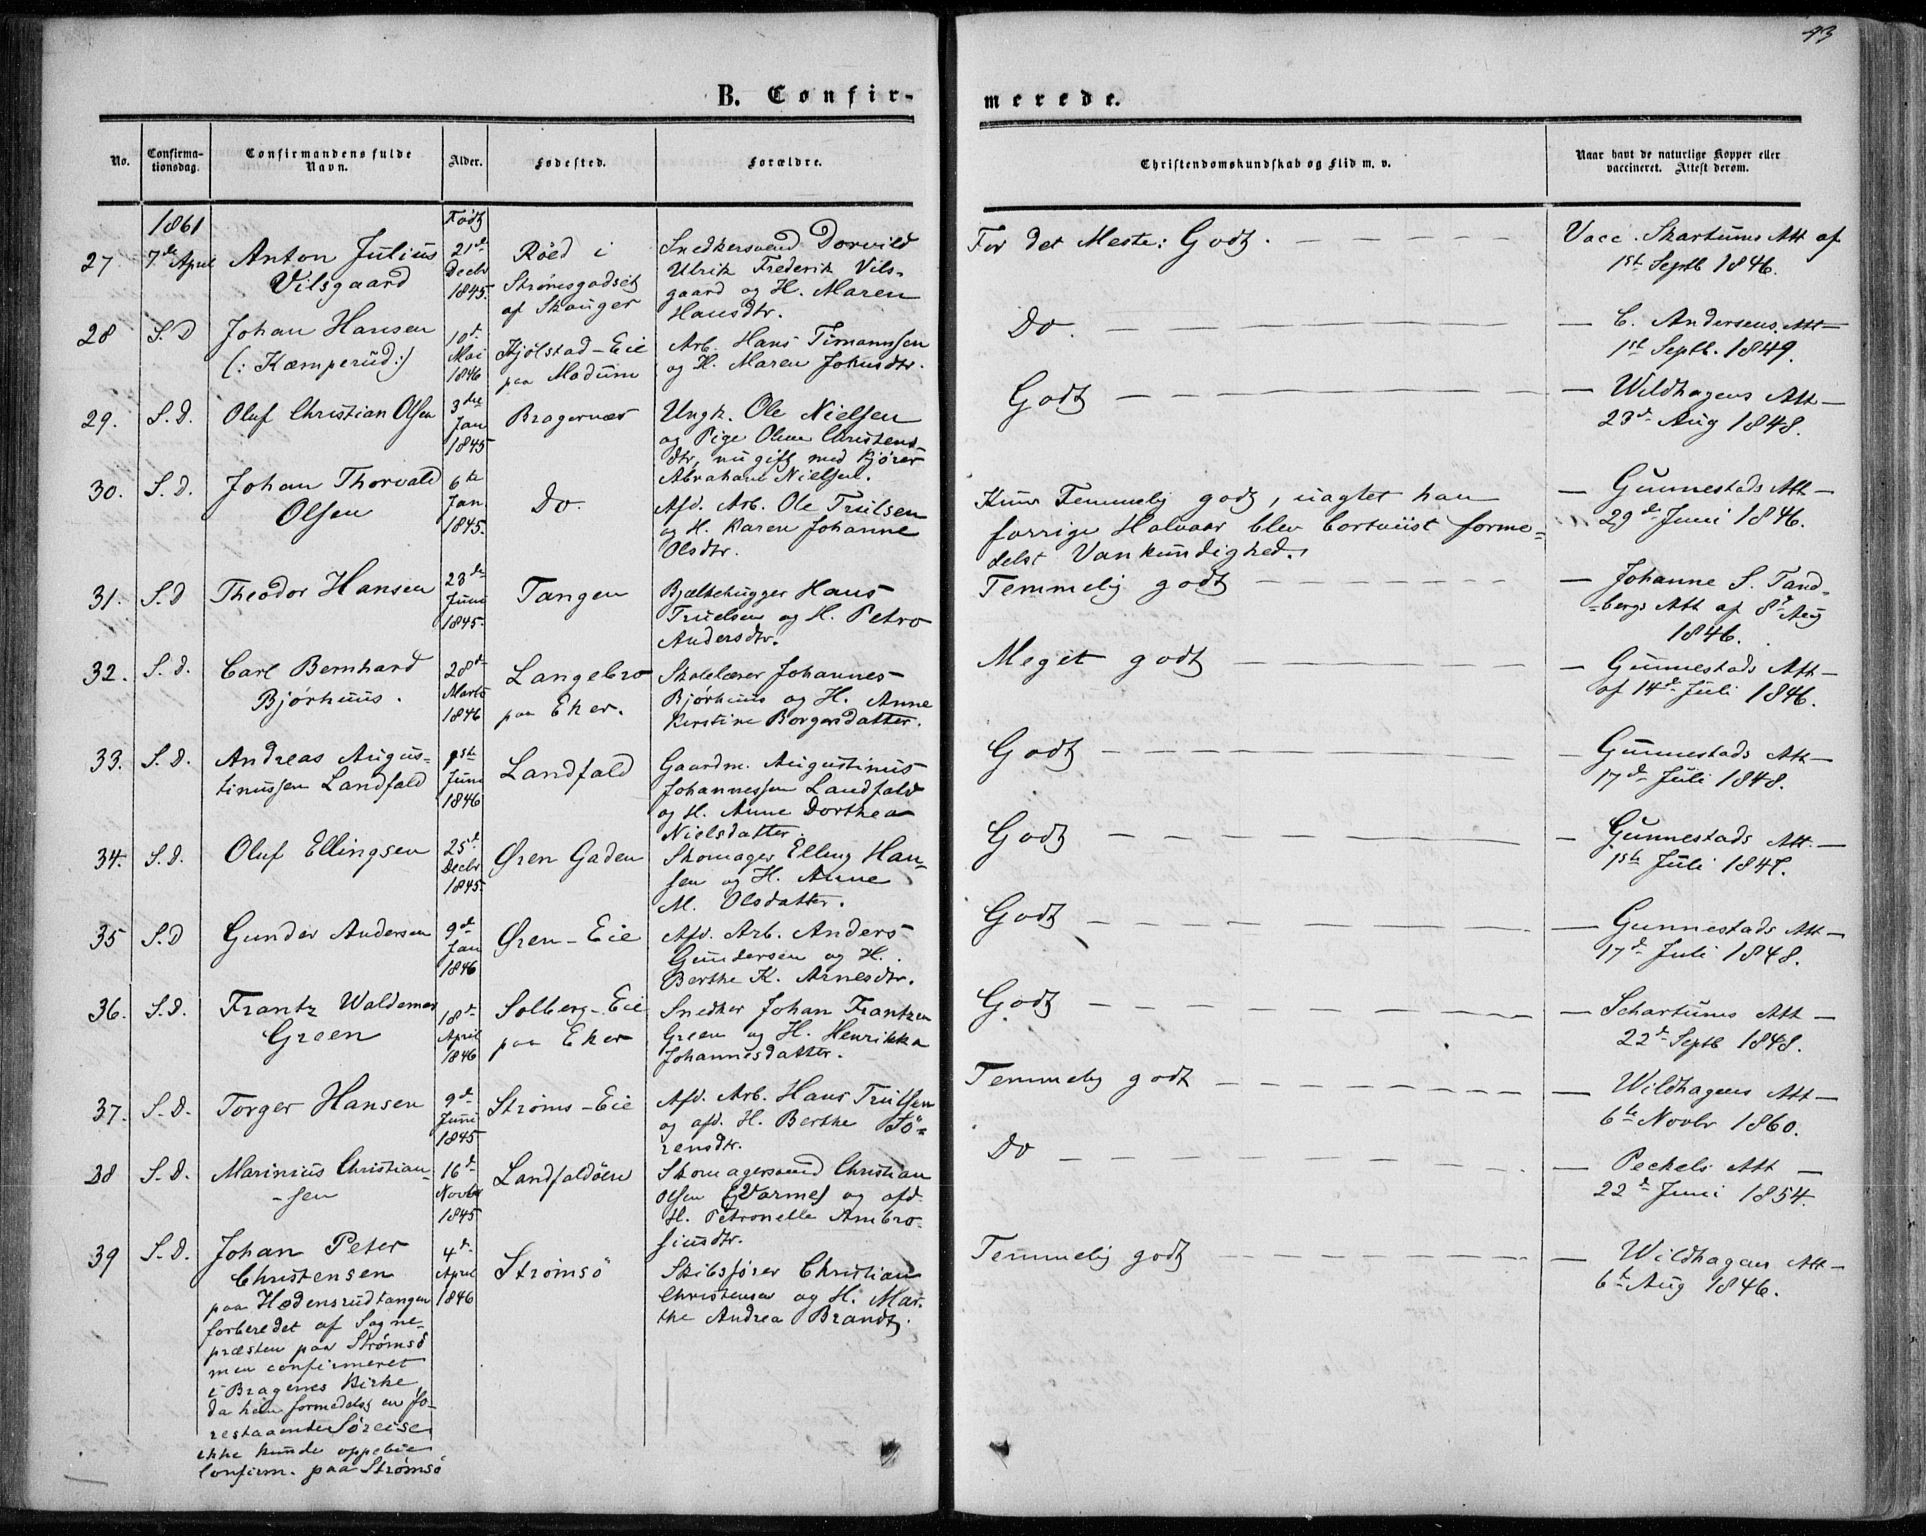 93
B. Confir-
merede.
No.
Confirma-
tionsdag.
Confirmandens fulde
Navn.
Alder.
Fødested.
Forældre.
Christendomskundskab og Flid m. v.
Naar havt de naturlige Kopper eller
vaccineret. Attest derom.
1861
Født
27 7de April Anton Julius
Vilsgaard
21de
Decbr
1845.
Røed i
Strømsgodset
af Skouger
Snedkersvend Dorvild
Ulrik Frederik Vils-
gaard og H. Maren
Hansdtr.
For det Meste: Godt.
Vacc. Skartums Att af
1ste Septb 1846.
28 S. D Johan Hansen
(: Kæmperud:)
10de
Mai
1846
Hjølstad-Eie
paa Modum
Arb. Hans Timannsen
og H. Maren Johnsdtr.
Do.
— C. Andersens. Att
1ste Septb. 1849.
29. S. D. Oluf Christian Olsen
3die
Jan
1845
Bragernæs
Ungk. Ole Nielsen
og Pige Oline Christens-
dtr, nu gift med Kjører
Abraham Nielsen.
Godt
— Wildhagens Att
23de Aug 1848.
30. S. d. Johan Thorvald
Olsen
6te
Jan
1845.
Do.
Afd. Arb. Ole Trulsen
og H. Karen Johanne
Olsdtr.
Kun Temmelig godt, uagtet han
forrige Halvaar blev bortviist forme-
delst Vankundighed.
— Gunnestads Att
29de Juni 1846.
31. S. D Theodor Hansen
23de
Juni
1845.
Tangen
Bjælkehugger Hans
Truelsen og H. Petro
Andersdtr.
Temmelig godt
— Johanne S. Tand-
-bergs Att af 8de Aug
1846.
32. S. d. Carl Bernhard
Bjørhuus.
28de
Marts
1846
Langebro
paa Eker.
Skolelærer Johannes
Bjørhuus og H. Anne
Kirstine Borgersdatter.
Meget godt
— Gunnestads Att
af 14de Juli 1846.
33. S. D. Andreas Augus-
tinussen Landfald
1ste
Juni
1846
Landfald
Gaardm. Augustinus
Johannessen Landfald
og H. Anne Dorthea
Nielsdatter.
Godt
— Gunnestads Att
17de Juli 1848.
34. S. D. Oluf Ellingsen
25de
Decbr
1845
Øren Gaden
Skomager Elling Han-
sen og H. Anne
M. Olsdatter.
Godt
— Gunnestads Att.
1ste Juli 1847.
35 S. D Gunder Andersen
9de
Jan
1846
Øren-Eie
Afd. Arb. Anders
Gundersen og H.
Berthe K. Arnesdtr.
Godt
— Gunnestads Att
17de Juli 1848.
36. S. D. Frantz Waldemar
Green
18de
April
1846
Solberg-Eie
paa Eker
Snedker Johan Frantzen
Green og H. Henrikka
Johannesdatter.
Godt
— Schartums Att
22de Septb 1848.
37. S. D. Torger Hansen
9de
Juni
1845
Strøms-Eie
Afd. Arb. Hans Trulsen
og afd. H. Berthe Sö-
rensdtr.
Temmelig godt
— Wildhagens Att
6te Novbr 1860.
38 S. D. Marinius Christian-
-sen
16de
Novbr
1845
Landfaldöen
Skomagersvend Christian
Olsen og afd.
H. Petronelle Ambro-
siusdtr.
Do
— Peckels Att
22de Juni 1854.
39 S. D. Johan Peter
Christensen
paa Hedensrudtangen
forberedet af Sogne-
præsten paa Strømsö
men confirmeret
i Bragernes Kirke,
da han formedelst en fo-
restaaende Søreise
ikke kunde oppebie
Confirm. paa Strømsö
4de
April
1846
Strömsö
Skibsfører Christian
Christensen og H. Mar-
the Andrea Brandt.
Temmelig godt
— Wildhagens Att
6te Aug 1846.